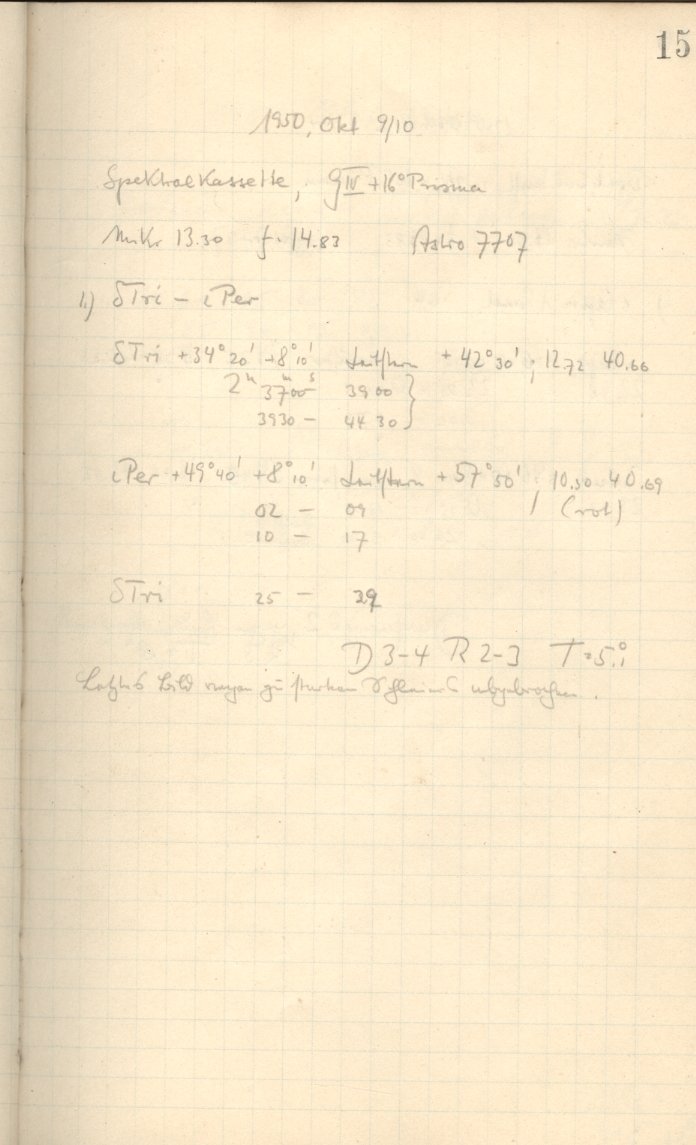 15
1950, Okt 9/10
Spektralkassette, g IV + 16° Prisma
Mikr 13.30 f. 14.83 Astro 7707
1.) δTri – ιPer
δTri +34°20' +8°10' Leitstern +42°30' ; 12.72 40.66
2h 37m00s – 39 00 }
3930 – 44 30 }
ιPer +49°40' +8°10' Leitstern +57°50' ; 10.30 40.69
02 – 09 (rot)
10 – 17
δTri 25 – 29
D 3-4 R 2-3 T = 5.°1
Letztes Bild wegen zu starken Schleiers abgebrochen.